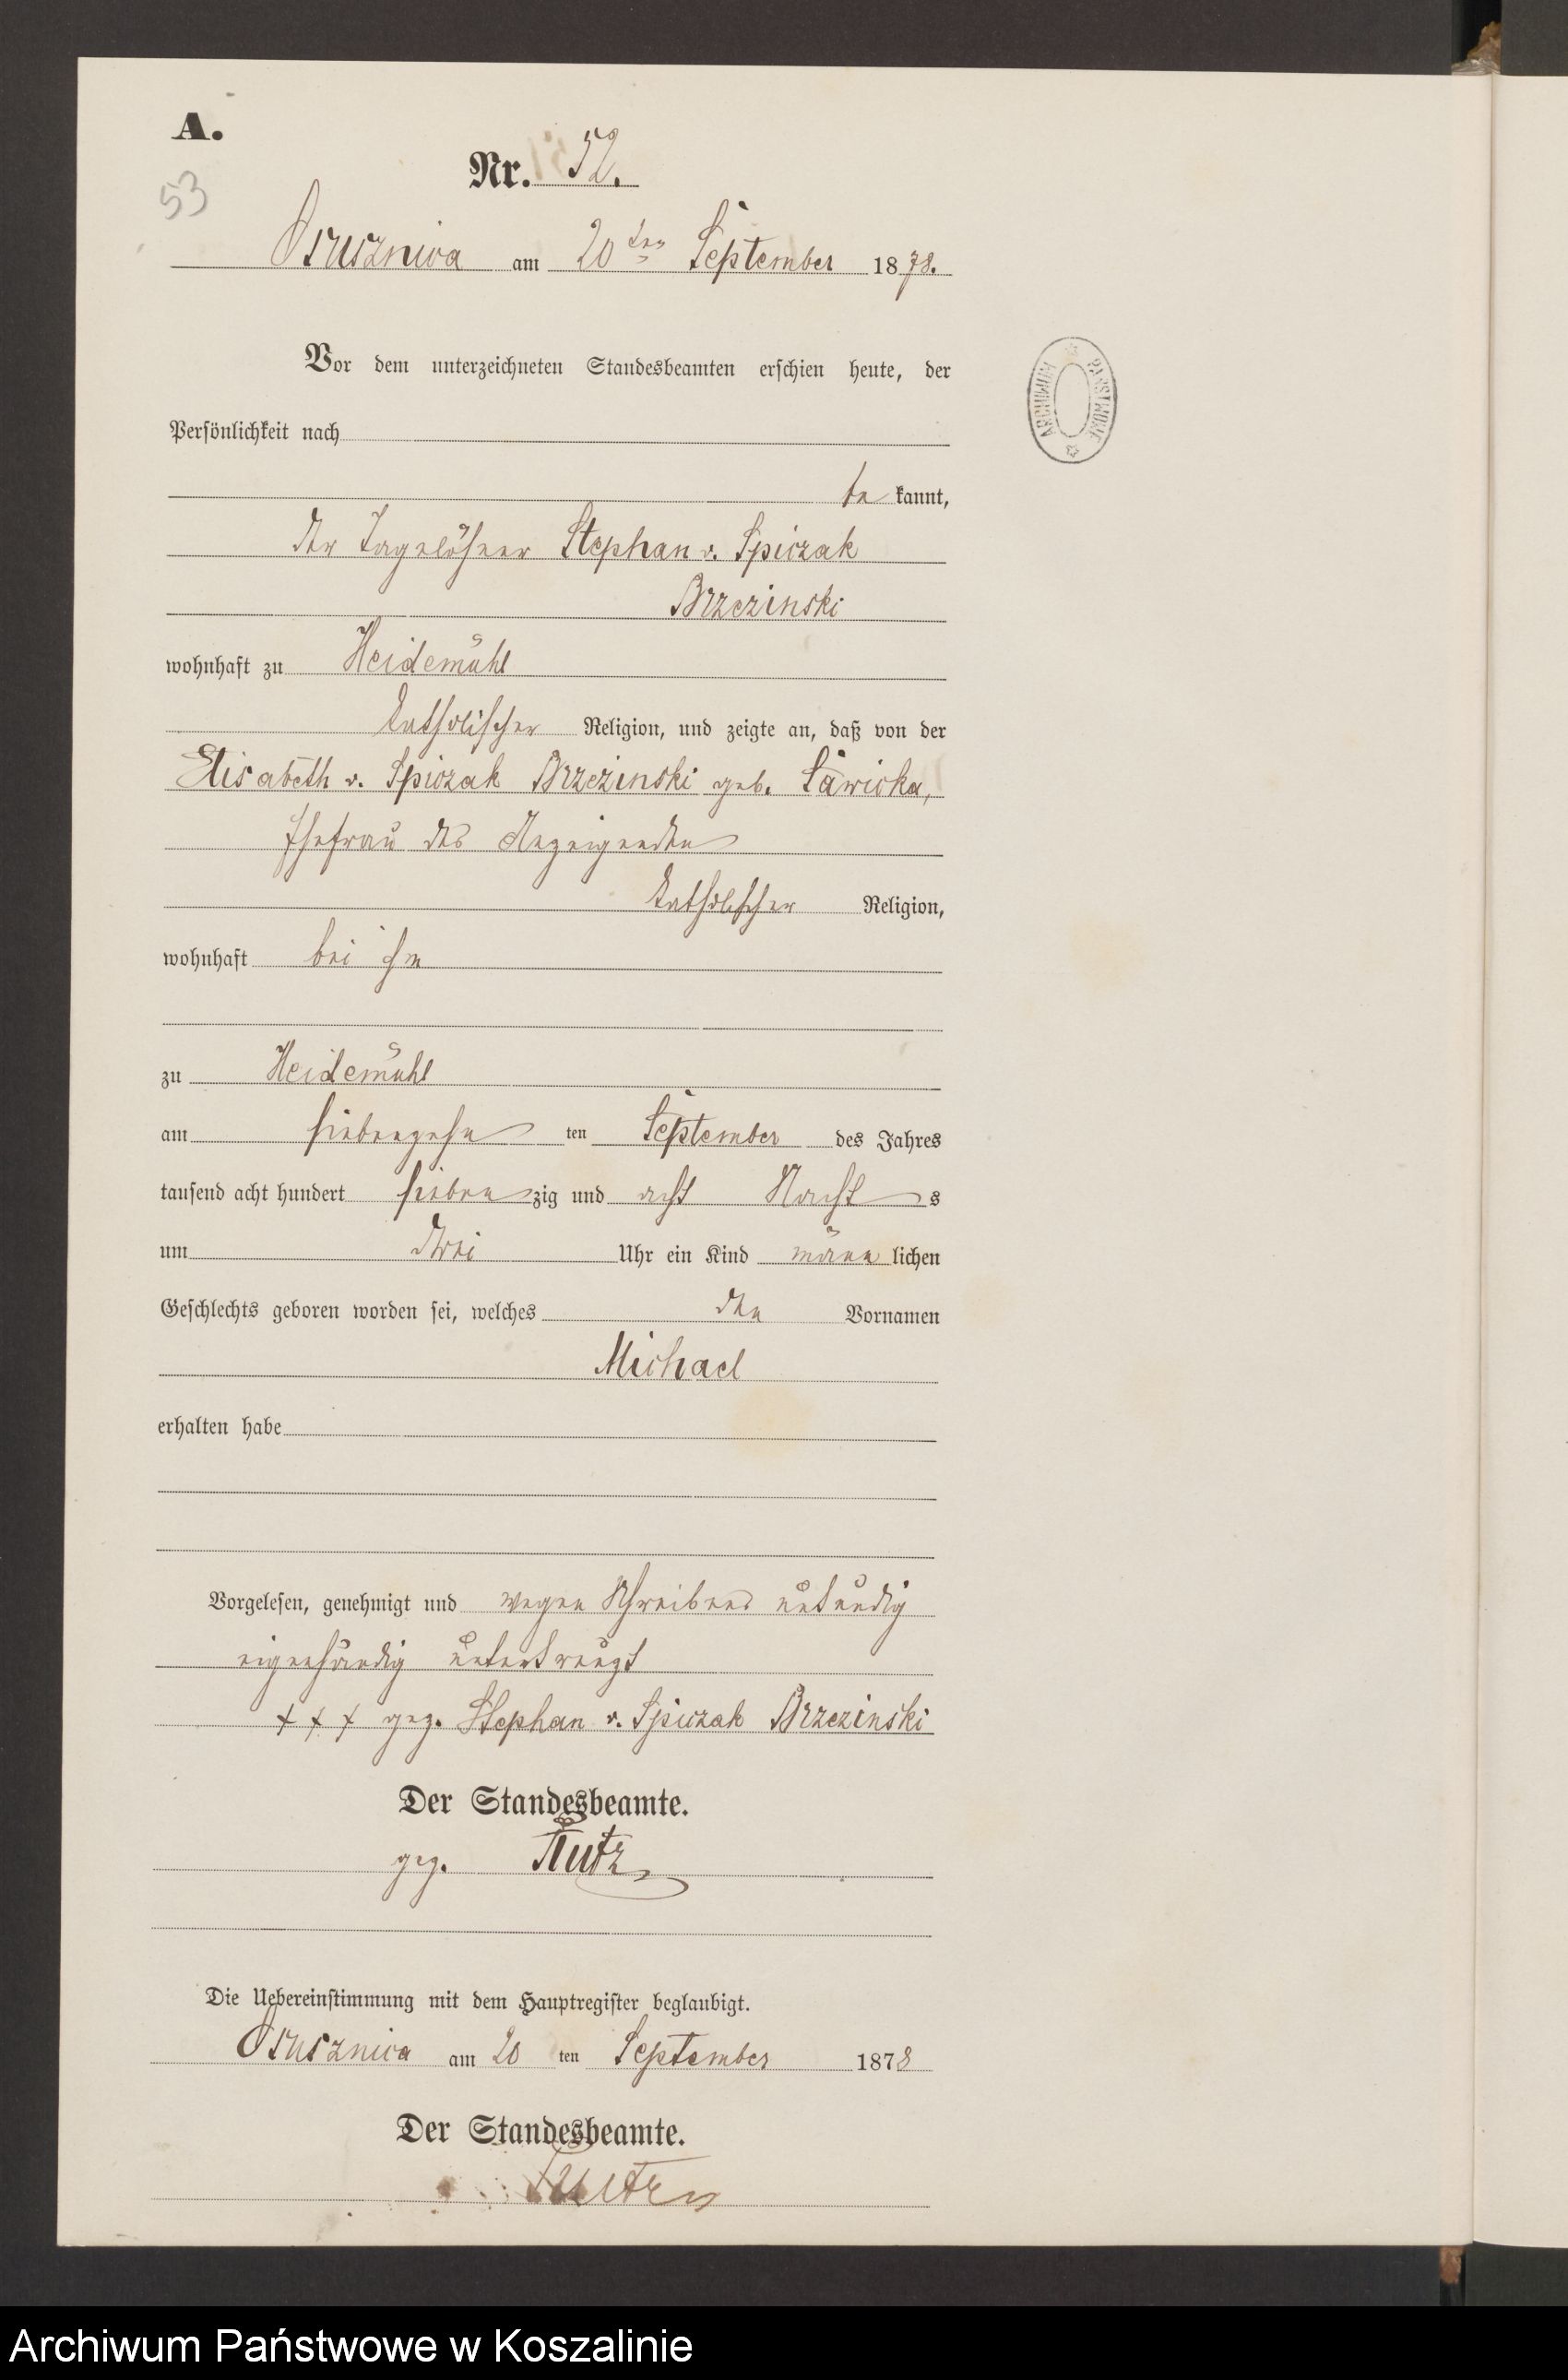 A.
Nr. 52.
53
Osusznica am 20ten September 1878.
Vor dem unterzeichneten Standesbeamten erschien heute, der
Persönlichkeit nach
be kannt,
der Tagelöhner Stephan v. Spiczak
Brzezinski
wohnhaft zu Heidemühl
katholischer Religion, und zeigte an, daß von der
Elisabeth v. Spiczak Brzezinski geb. Sawicka,
Ehefrau des Anzeigenden
katholischer Religion,
wohnhaft bei ihm
zu Heidemühl
am siebenzehn ten September des Jahres
tausend acht hundert sieben zig und acht Nacht s
um drei Uhr ein Kind männ lichen
Geschlechts geboren worden sei, welches den Vornamen
Michael
erhalten habe
Vorgelesen, genehmigt und wegen Schreibens unkundig
eigenhändig unterkreuzt
+ + + gez. Stephan v. Spiczak Brzezinski
Der Standesbeamte.
gez.
Die Uebereinstimmung mit dem Hauptregister beglaubigt.
Osusznica am 20 ten September 1878
Der Standesbeamte.
ARCHIWUM PAŃSTWOWE
Archiwum Państwowe w Koszalinie